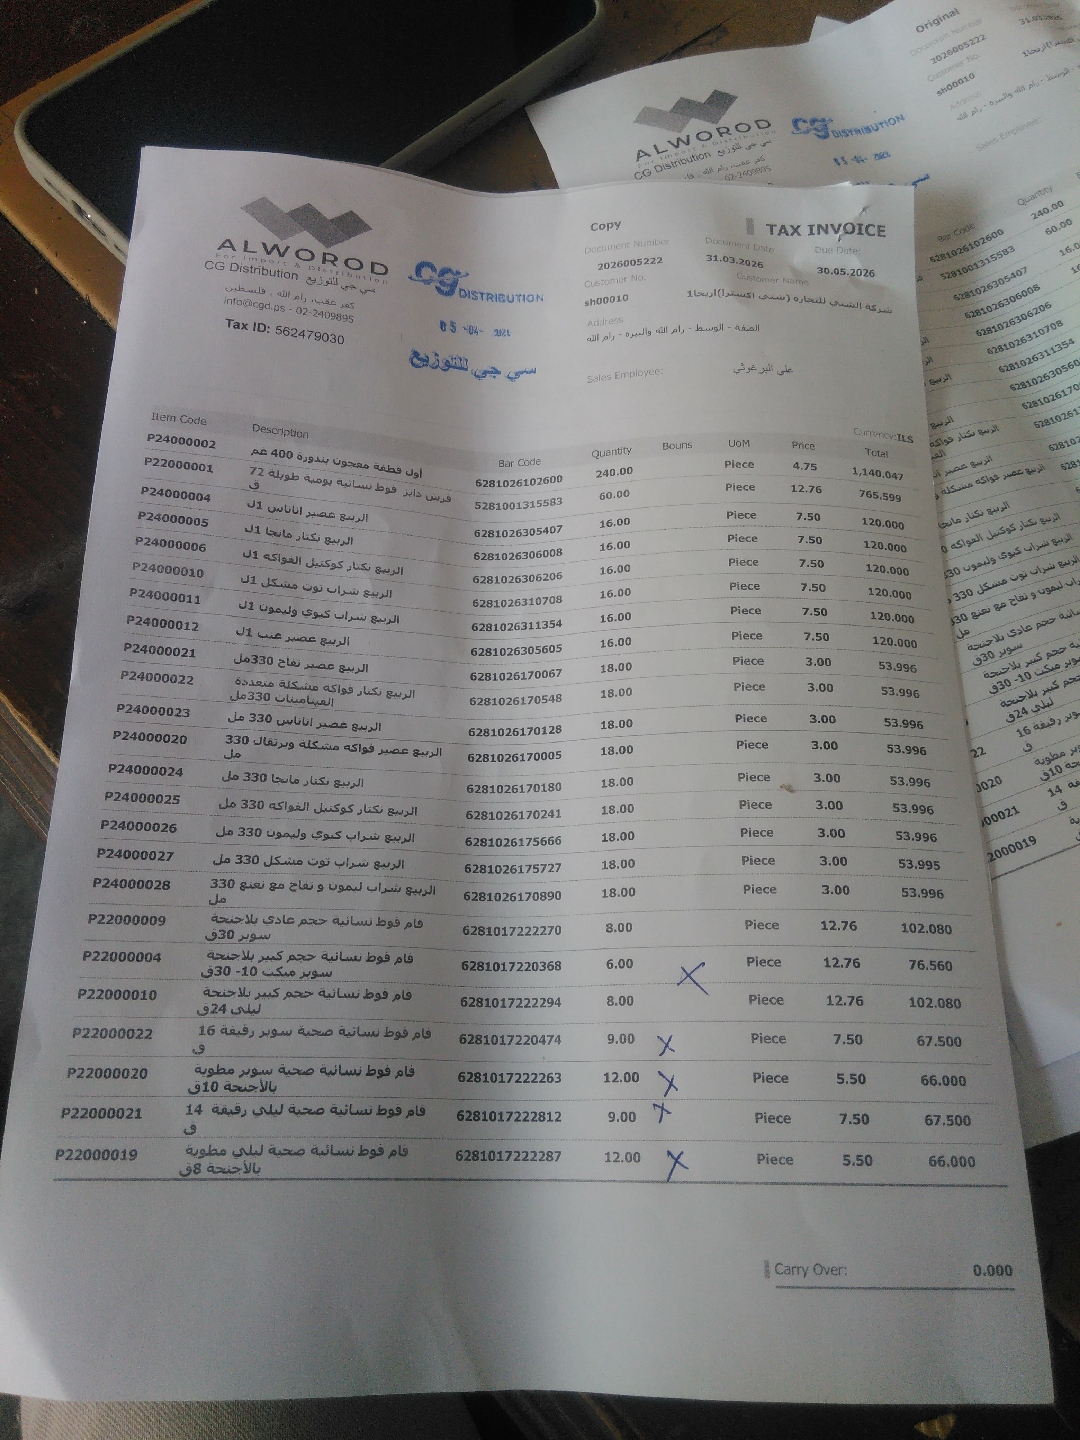 ALWOROD
For Import & Distribution
CG Distribution سي جي للتوزيع
كفر عقب، رام الله ، فلسطين
info@cgd.ps - 02-2409895
Tax ID: 562479030
cg DISTRIBUTION
سي جي للتوزيع
Copy
TAX INVOICE
Document Number Document Date Due Date:
2026005222 31.03.2026 30.05.2026
Customer No. Customer Name
sh00010 شركة الشني للتجارة (شني اكسترا)اريحا1
Address
الضفة - الوسط - رام الله والبيرة - رام الله
Sales Employee: علي البرغوثي
Currency:ILS
Item Code Description Bar Code Quantity Bouns UoM Price Total
P24000002 أول قطفة معجون بندورة 400 غم 6281026102600 240.00 Piece 4.75 1,140.047
P22000001 فرش دايز فوط نسائية يومية طويلة 72 ق 5281001315583 60.00 Piece 12.76 765.599
P24000004 الربيع عصير اناناس 1ل 6281026305407 16.00 Piece 7.50 120.000
P24000005 الربيع نكتار مانجا 1ل 6281026306008 16.00 Piece 7.50 120.000
P24000006 الربيع نكتار كوكتيل الفواكه 1ل 6281026306206 16.00 Piece 7.50 120.000
P24000010 الربيع شراب توت مشكل 1ل 6281026310708 16.00 Piece 7.50 120.000
P24000011 الربيع شراب كيوي وليمون 1ل 6281026311354 16.00 Piece 7.50 120.000
P24000012 الربيع عصير عنب 1ل 6281026305605 16.00 Piece 7.50 120.000
P24000021 الربيع عصير تفاح 330مل 6281026170067 18.00 Piece 3.00 53.996
P24000022 الربيع نكتار فواكه مشكلة متعددة الفيتامينات 330مل 6281026170548 18.00 Piece 3.00 53.996
P24000023 الربيع عصير اناناس 330 مل 6281026170128 18.00 Piece 3.00 53.996
P24000020 الربيع عصير فواكه مشكلة وبرتقال 330 مل 6281026170005 18.00 Piece 3.00 53.996
P24000024 الربيع نكتار مانجا 330 مل 6281026170180 18.00 Piece 3.00 53.996
P24000025 الربيع نكتار كوكتيل الفواكه 330 مل 6281026170241 18.00 Piece 3.00 53.996
P24000026 الربيع شراب كيوي وليمون 330 مل 6281026175666 18.00 Piece 3.00 53.996
P24000027 الربيع شراب توت مشكل 330 مل 6281026175727 18.00 Piece 3.00 53.995
P24000028 الربيع شراب ليمون و تفاح مع نعنع 330 مل 6281026170890 18.00 Piece 3.00 53.996
P22000009 فام فوط نسائية حجم عادي بلاجنحة سوبر 30ق 6281017222270 8.00 Piece 12.76 102.080
P22000004 فام فوط نسائية حجم كبير بلاجنحة سوبر ميكت 10- 30ق 6281017220368 6.00 Piece 12.76 76.560
P22000010 فام فوط نسائية حجم كبير بلاجنحة ليلي 24ق 6281017222294 8.00 Piece 12.76 102.080
P22000022 فام فوط نسائية صحية سوبر رقيقة 16 ق 6281017220474 9.00 Piece 7.50 67.500
P22000020 فام فوط نسائية صحية سوبر مطوية بالأجنحة 10ق 6281017222263 12.00 Piece 5.50 66.000
P22000021 فام فوط نسائية صحية ليلي رقيقة 14 ق 6281017222812 9.00 Piece 7.50 67.500
P22000019 فام فوط نسائية صحية ليلي مطوية بالأجنحة 8ق 6281017222287 12.00 Piece 5.50 66.000
Carry Over: 0.000